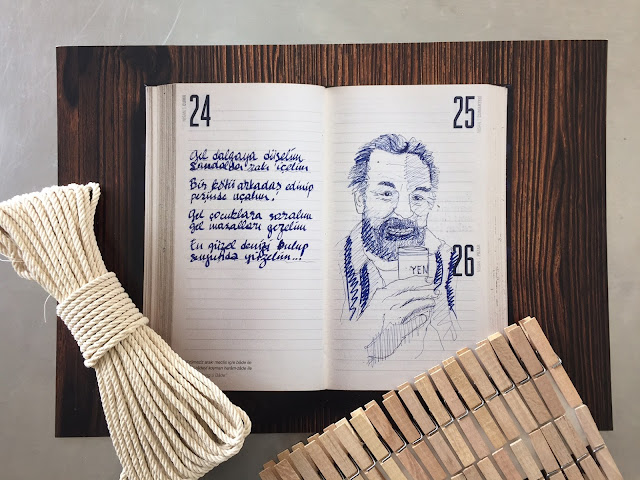 24
Gel dalgaya düşelim
sandalda rakı içelim
Bir kötü arkadaş edinip
peşinde uçalım!
Gel çocuklara saralım
Gel masalları gezelim
En güzel denizi bulup
yüzelim...!
25
26
YEN